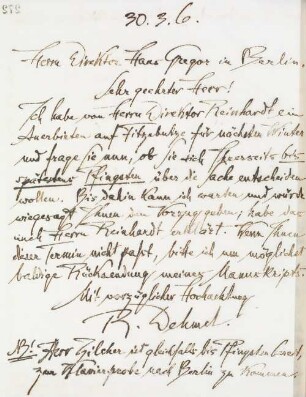 30. 3. 6.
Herrn Direktor Hans Gregor in Berlin.
Sehr geehrter Herr!
Ich habe von Herrn Direktor Reinhardt ein
Anerbieten auf Fitzebutze für nächsten Winter
und frage Sie nun, ob Sie sich Ihrerseits bis
spätestens Pfingsten über die Sache entscheiden
wollen. Bis dahin kann ich warten und würde
wiegesagt Ihnen den Vorzug geben, habe das
auch Herrn Reinhardt erklärt. Wenn Ihnen
dieser Termin nicht paßt, bitte ich um möglichst
baldige Rücksendung meines Manuskripts.
Mit vorzüglicher Hochachtung
R. Dehmel.
NB! Herr Zilcher ist gleichfalls bis Pfingsten bereit,
zum Klavierprobe nach Berlin zu kommen.